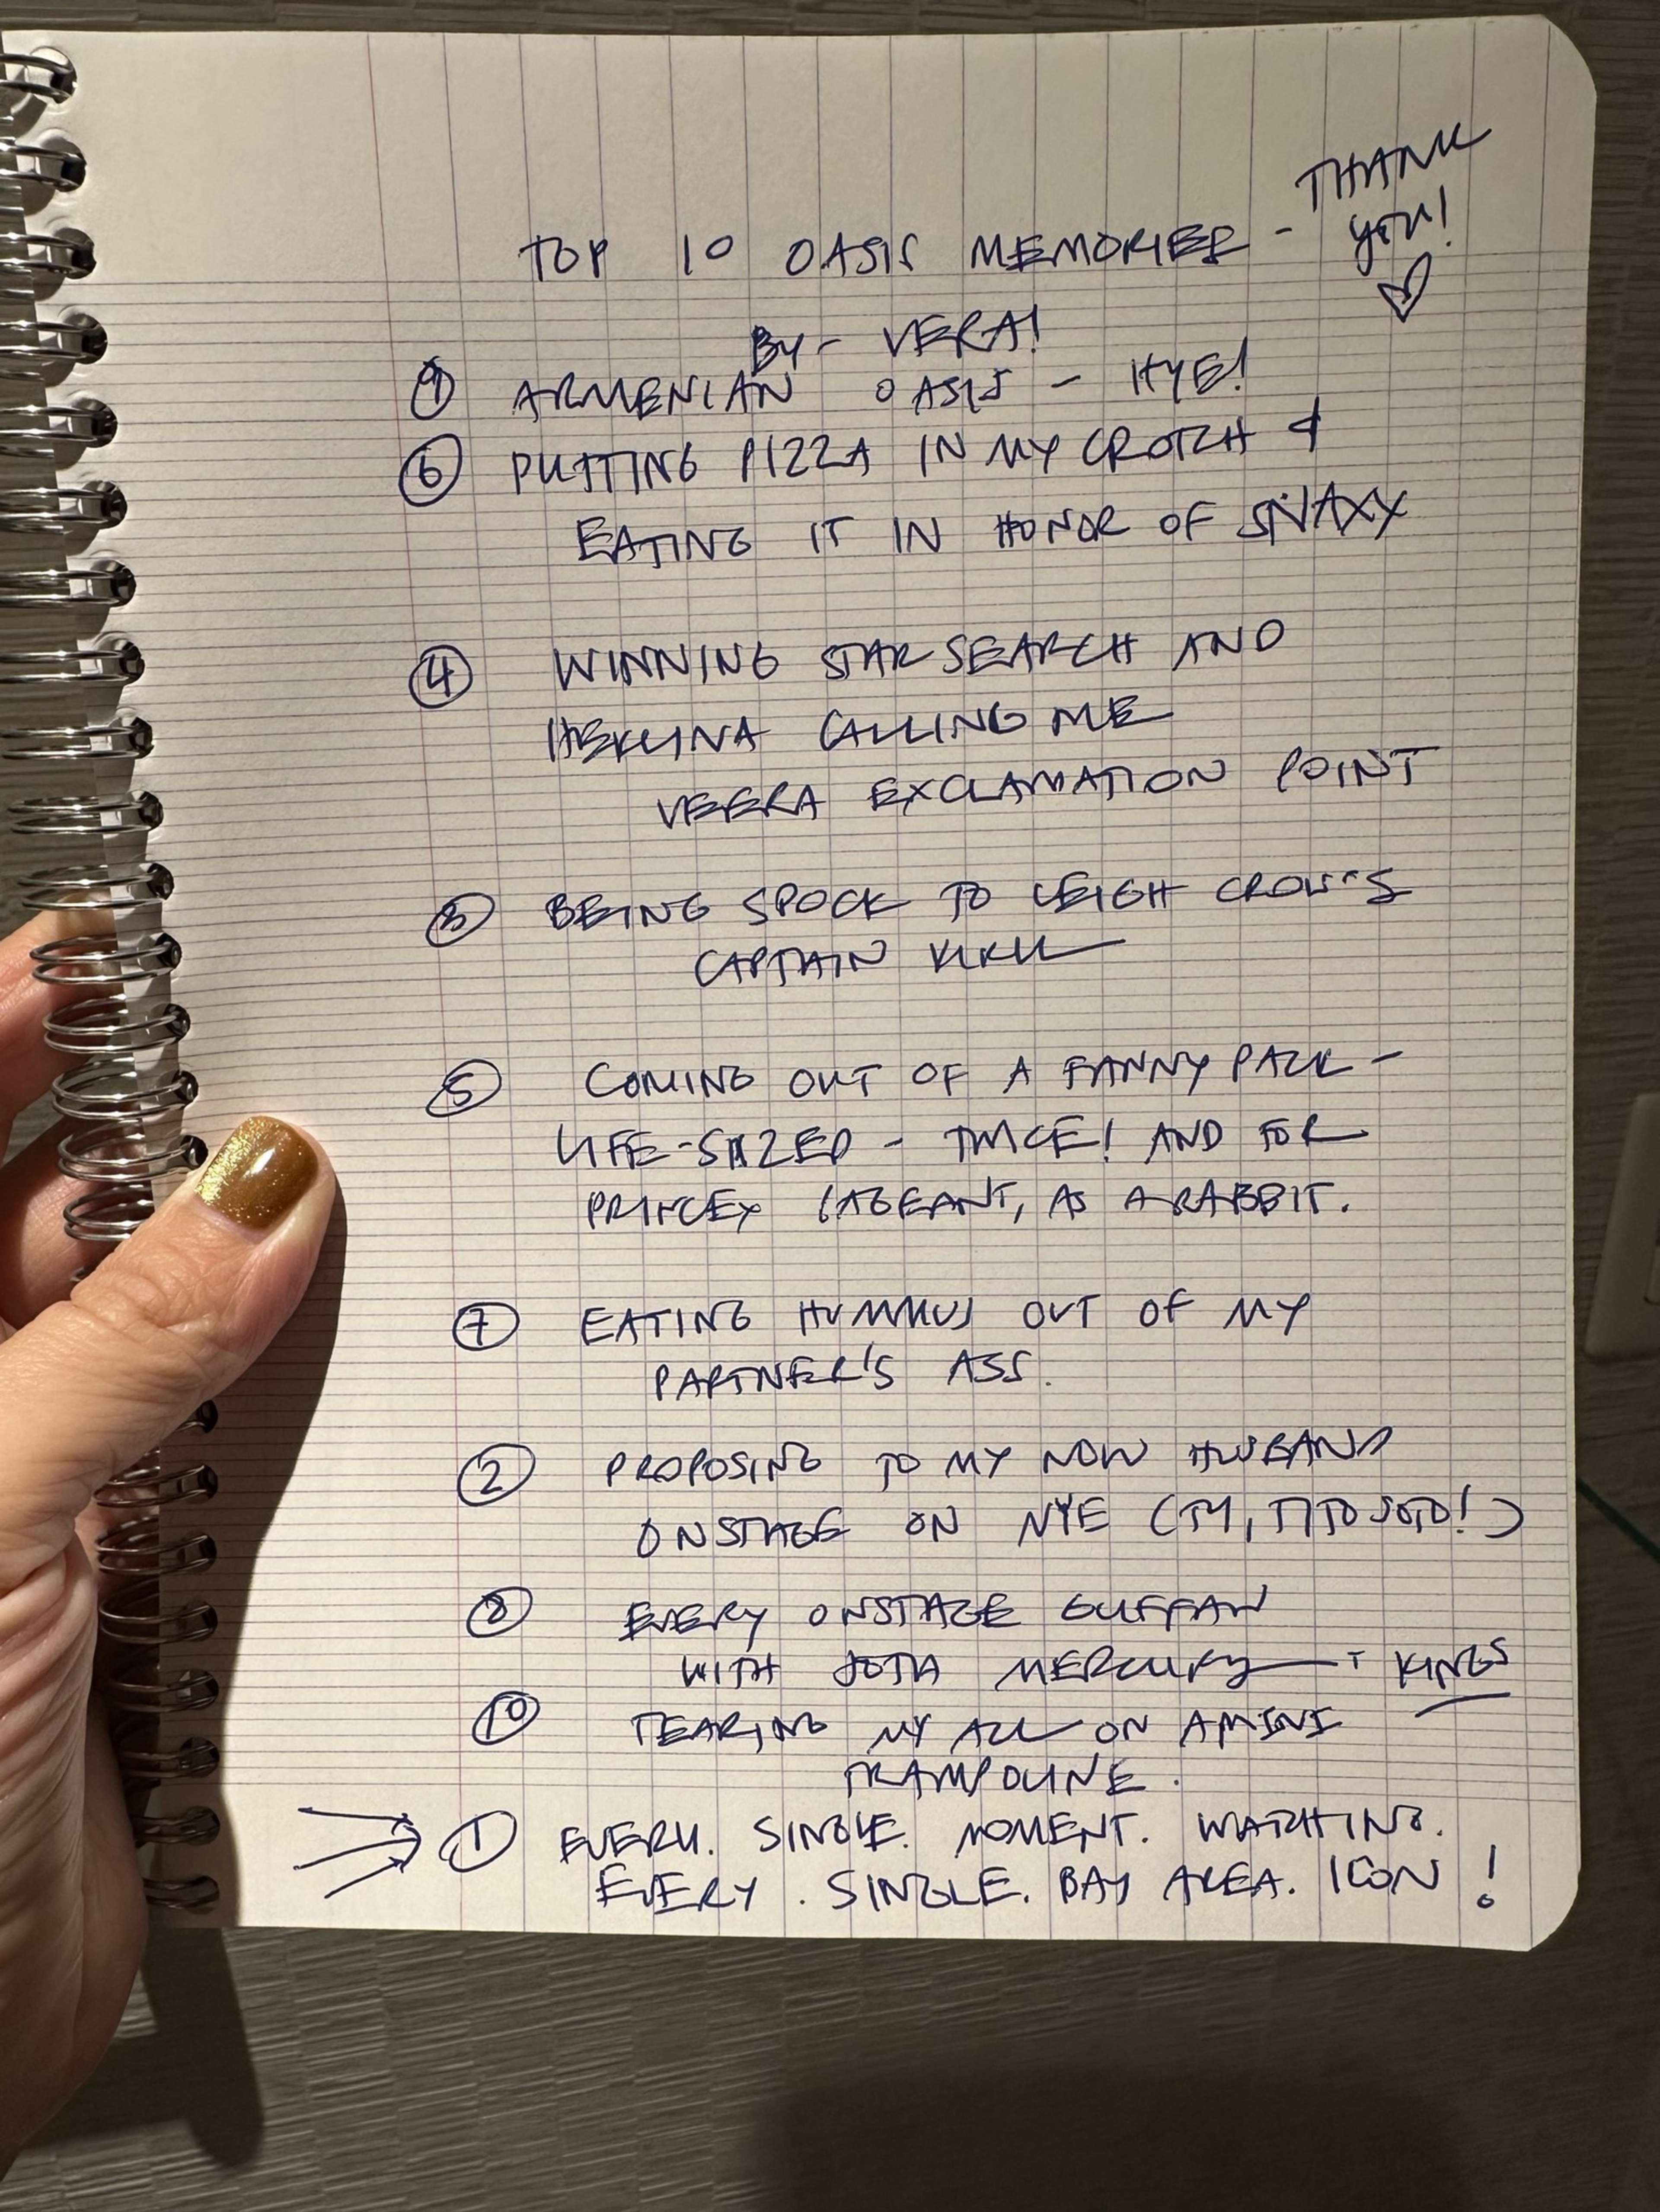 TOP 10 OASIS MEMORIES - THANK YOU! ♡
BY - VERA!
⑨ ARMENIAN OASIS - HYE!
⑥ PUTTING PIZZA IN MY CROTCH &
EATING IT IN HONOR OF SNAXX
④ WINNING STAR SEARCH AND
HEKLINA CALLING ME
VEERA EXCLAMATION POINT
③ BEING SPOCK TO LEIGH CROW'S
CAPTAIN KIRK
⑤ COMING OUT OF A FANNY PACK -
LIFE-SIZED - TWICE! AND FOR
PAGEANT, AS A RABBIT.
⑦ EATING HUMMUS OUT OF MY
PARTNER'S ASS.
② PROPOSING TO MY NOW HUSBAND
ONSTAGE ON NYE (TY, TITO SOTO!)
⑧ EVERY ONSTAGE GUFFAW
WITH JOTA MERCURY + KINGS
⑩ TEARING MY ACL ON A MINI
TRAMPOLINE.
① EVERY. SINGLE. MOMENT. WATCHING.
EVERY. SINGLE. BAY AREA. ICON!